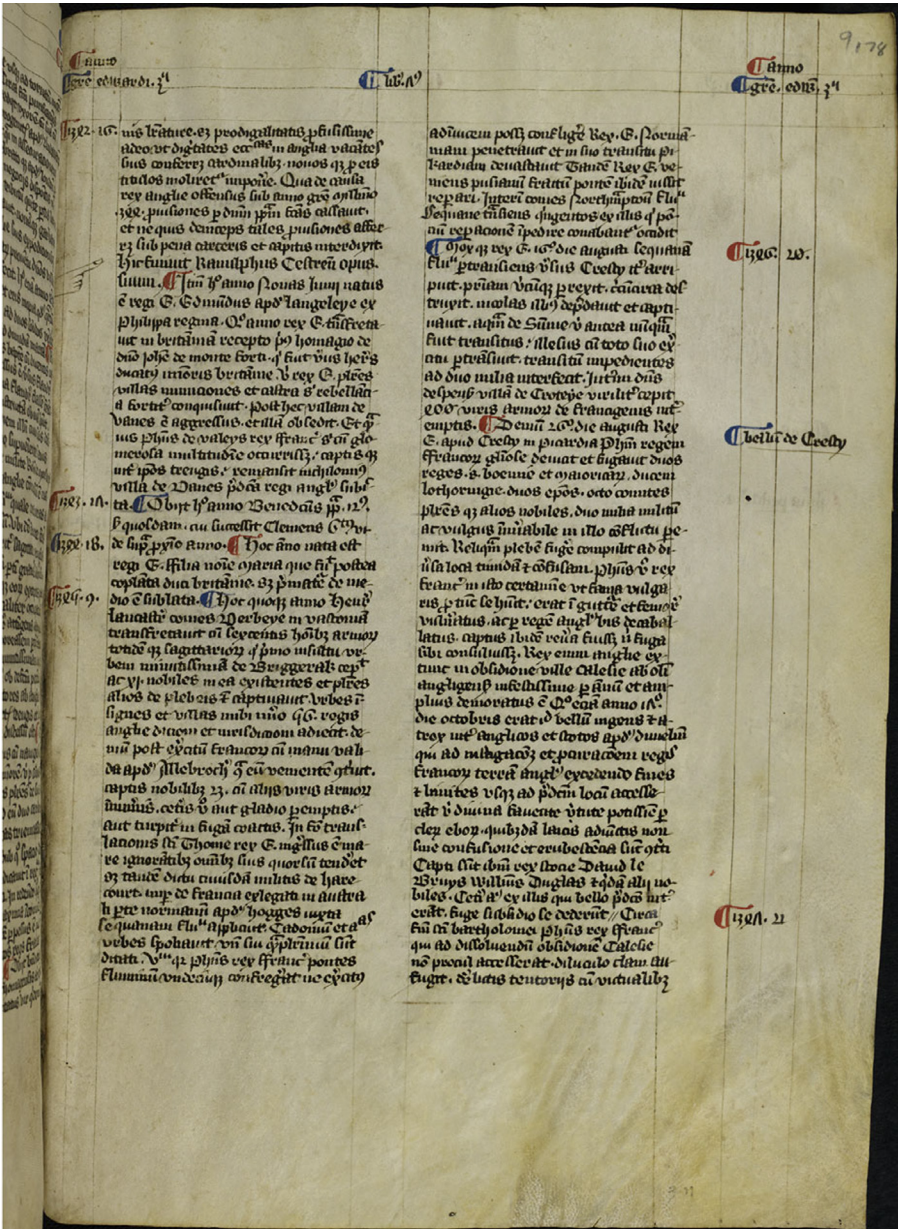 Anno
gre edwardi 3ii
lib. 7us
Anno
gre. edw. 3ii
9
178
1342. 16.
nis lrature. set prodigalitatis profusissime
adeo ut dignitates eccas in anglia vacates
suis conferret cardinalibz. novos qz per eis
titulos moliret imponere. Qua de causa
rex anglie offensus sub anno gre millimo
344. provisiones per dnm ppam fcas cassavit.
et ne quis deinceps tales provisiones affer
ret sub pena carceris et capitis interdixit.
hic finivit Ranulphus Cestren opus
suum. Itm hoc anno Nonas Junij natus
e regi E. Edmundus apud langeleye ex
Philippa regina. Qo anno rex E. transfreta
vit in britaniam recepto prius homagio de
dno Johe de monte forti. q fuit verus heres
ducatus minoris britanie. v rex E. plres
villas municiones et castra s rebellan
a fortiter conquisivit. Post hec villam de
vanes e aggressus. et illam obsedit. Et q
ius Phus de valeys rex franc s cu glo
merosa multitudine occurriss. captis qz
int ipos treugis. remansit in
villa de vanes pdca regi angl subc
1343. 17.
ta. Obijt hoc anno Benedictus pp. 12.
s quosdam. cui successit Clemens 6us vt
1344. 18.
de supra pximo anno. Hoc anno nata est
regi E. filia noie maria que fuit postea
copulata duci britanie. set p mate de me
1345. 9.
dio e sublata. Hoc quoqz anno Henr
lancastr comes derbeye in vasconia
transfretavit cu sexcentis hoibz armor
totidem qz sagittarior q primo insultu ur
bem munitissima de Briggerak cepit
ac xi. nobiles in ea existentes et plres
alios de plebeis e captivavit. urbes i
signes et villas michi uno 46. regis
anglie dicioni et iurisdictioni adiecit. de
mu post exercitu francor cu manu vali
da apud Albroch q eu vehemente
captis nobilibz 23. cu alijs viris armor
innumeris. ceteris v aut gladio peremptis.
aut turpiter in fuga coactis. In fo trans
lacionis sci Thome rex E. ingressus e ma
re ignoratibz omibz suis quorsum tendet
set tande ductu cuiusda militis de hare
court. nuper de francia exlegati in austra
li parte normanie apud hogges iuxta
sequanam fluuiu applicuit. Cadomum et aas
urbes spoliavit un sui qplurimu sut
ditati. Uu qz Phus rex ffranc pontes
fluminu undecuqz confregat ne exercitus
adinvicem poss confligere Rex. E. Norma
niam penetravit et in suo transitu Pi
kardiam devastavit Tandem Rex E. ve
niens pissiacum fractum pontem ibidem iussit
reparari. Interi comes Northamptonie fluuiu
Sequane transiens quigentos ex illis q pon
ciu reparacione ipedire conabant occidit
1346. 20.
Mox qz rex E. 16. die augusti sequana
fluuiu pertransiens vsus Cressy iter arri
puit. patriam utriqz perrexit. circuitu des
truxit. incolas illius depdavit et capti
vavit. aquam de Summe v antea nuquam
fuit transitus. illesus cu toto suo ex
citu pertransivit. transitum impedientes
ad duo milia interfecit. Interim dns
despens villa de Croteye virilit cepit
400 viris armor de francigenis int
bellu de Cressy
emptis. Demu 26. die augusti Rex
E. apud Cressy in Picardia Phm regem
ffrancor gliose devicit et fugavit duos
reges. s. boemie et maioricar. ducem
lothoringie. duos epos. octo comites
plres qz alios nobiles. duo milia militu
ac vulgus inumerabile in illo coflictu pe
mit. Reliquam plebem fuge compulit ad di
uersa loca timida et cofusam. Phus v rex
franc in isto certamine ut fama vulga
ris per tunc se huit. erat i guttre et femore
vulneratus. ac per regem angl bis decabal
latus. captus ibidem revera fuiss n fuga
sibi consuluiss. Rex enim anglie ex
tunc in obsidione ville Calesie ab oli
angligenis infestissime per annum et am
plius demoratus e Qo ecia anno 17.
die octobris erat id bellu ingens et a
trox int anglicos et scotos apud dunelm
qui ad instigacoem et procuracoem regis
francor terram angl excedendo fines
et limites vsqz ad pdcm locu accesse
rat v divina favente vtute potissime per
cler ebor quibzda laicis adiunctis non
sine confusione et erubescencia sunt
Capti sut ibm rex scocie David le
Bruys Willms Duglas et qdam alij no
biles. Ceteri ex illis qui bello pdco int
1347. 21
erat. fuge subsidio se dederut // Circa
fm sci bartholomei Phus rex ffranc
qui ad dissolvendu obsidione Calesie
non procul accesserat. diluculo clam au
fugit. derelictis tentorijs cu victualibz